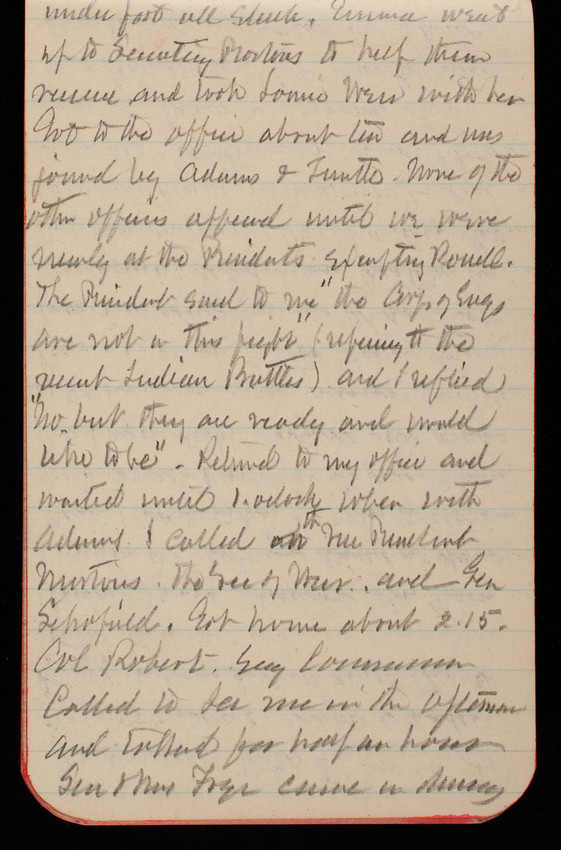 under foot all slush. Emma went
up to Secretary Proctors to help them
receive and took Loonie Weir with her
Got to the office about ten and was
joined by Adams & Turtle. None of the
other officers appeared until we were
nearly at the Presidents excepting Powell.
The President said to me "the Corps of Engs
are not in this fight" (referring to the
recent Indian Battles) and I replied
"No. but they are ready and would
like to be". Returned to my office and
waited until 1. oclock when with
Adams I called on the Vice President
Mortons. the Sec of War. and Gen
Schofield. Got home about 2.15.
Col Robert. Eng Commission
called to see me in the afternoon
and talked for half an hour
Gen & Mrs Frye came in during